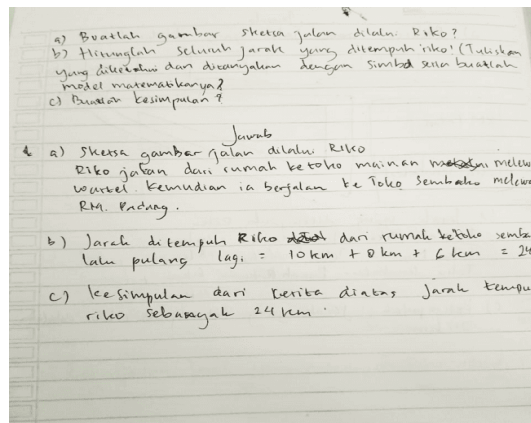 a) Buatlah gambar sketca jalan dilalui Riko?
b) Hitunglah seluruh jarak yang ditempuh riko! (Tuliskan
yang diketahui dan ditanyakan dengan simbol serta buatlah
model matematikanya?
c) Buatlah kesimpulan?
Jawab
a) Sketsa gambar jalan dilalui Riko
Riko jalan dari rumah ke toko mainan melew
wartel. Kemudian ia berjalan ke Toko Sembako melew
RM. Padang.
b) Jarak ditempuh Riko dari rumah ke toko semb
lalu pulang lagi = 10 km + 8 km + 6 km = 24
c) kesimpulan dari cerita diatas jarak tempu
riko sebanyak 24 km.